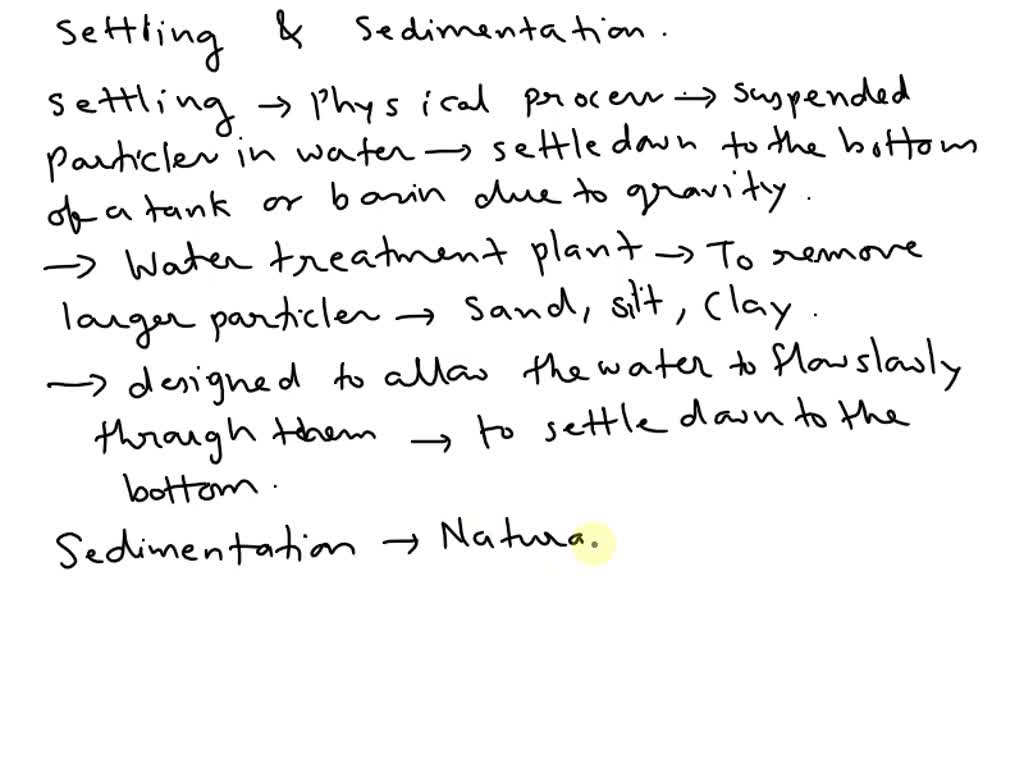 Settling & Sedimentation.
Settling → Physical process → suspended
particles in water → settle down to the bottom
of a tank or basin due to gravity.
→ Water treatment plant → To remove
larger particles → Sand, silt, Clay.
→ designed to allow the water to flow slowly
through them → to settle down to the
bottom.
Sedimentation → Natura